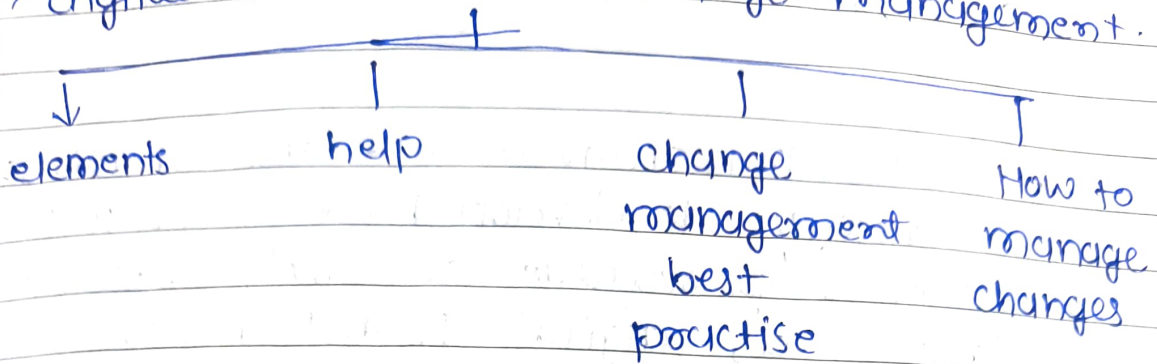 management.
elements
help
change
management
best
practise
How to
manage
changes